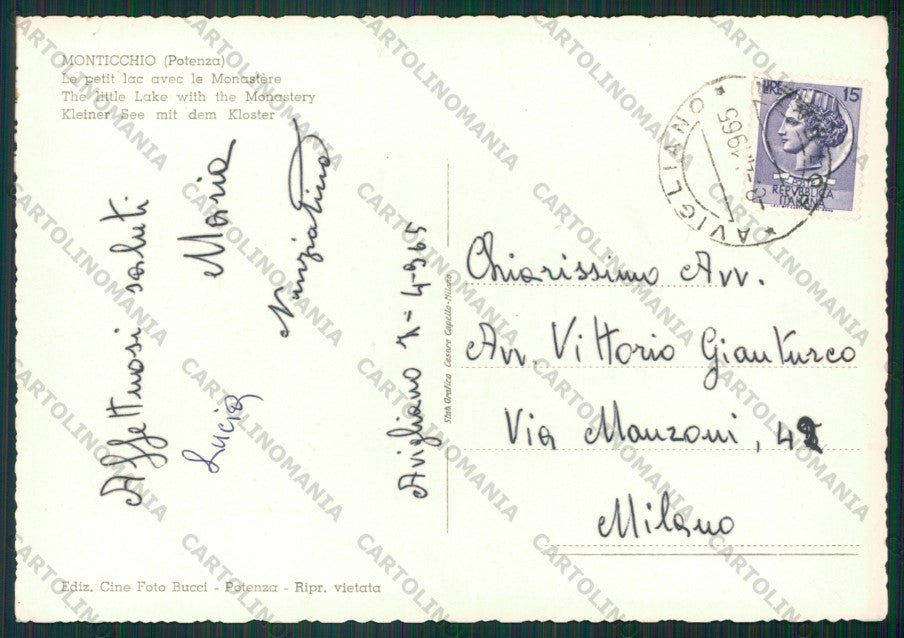 MONTICCHIO (Potenza)
Le petit lac avec le Monastère
The little Lake with the Monastery
Kleiner See mit dem Kloster
Affettuosi saluti
Maria
Lucia
Avigliano 7-4-965
Stab. Grafico Cesare Capello - Milano
LIRE 15
REPVBBLICA
ITALIANA
* AVIGLIANO *
Chiarissimo Avv.
Avv. Vittorio Gianturco
Via Manzoni, 42
Milano
Ediz. Cine Foto Bucci - Potenza - Ripr. vietata
CARTOLINOMANIA